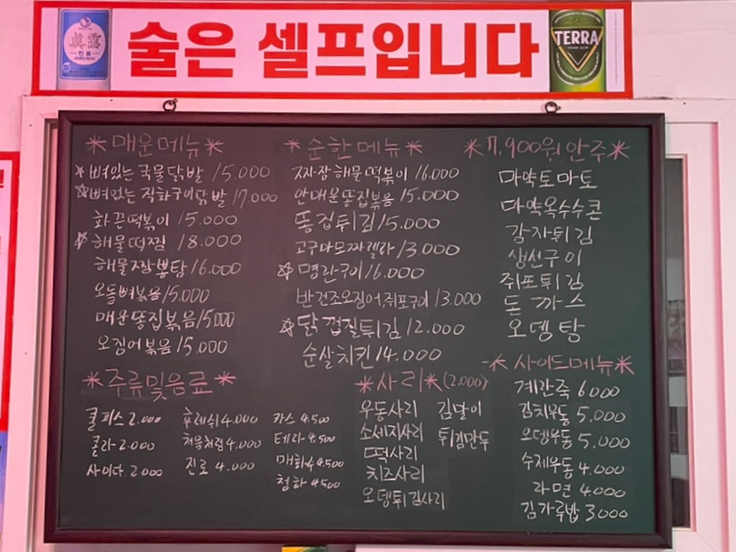 술은 셀프입니다
TERRA
*매운메뉴*
*뼈있는 국물닭발 15.000
☆뼈있는 직화구이닭발 17.000
화끈떡볶이 15.000
☆해물떡찜 18.000
해물짬뽕탕 16.000
오돌뼈볶음 15.000
매운똥집볶음 15.000
오징어볶음 15.000
*순한메뉴*
짜장해물떡볶이 16.000
안매운똥집볶음 15.000
똥집튀김 15.000
고구마모짜렐라 13.000
☆명란구이 16.000
반건조오징어쥐포구이 13.000
☆닭껍질튀김 12.000
순살치킨 14.000
*7.900원안주*
마약토마토
마약옥수수콘
감자튀김
생선구이
쥐포튀김
돈까스
오뎅탕
*주류및음료*
쿨피스 2.000
콜라 2.000
사이다 2.000
후레쉬 4.000
처음처럼 4.000
진로 4.000
카스 4.500
테라 4.500
매화수 4.500
청하 4.500
*사리*(2.000)
우동사리
소세지사리
떡사리
치즈사리
오뎅튀김사리
김말이
튀김만두
*사이드메뉴*
계란죽 6.000
김치우동 5.000
오뎅우동 5.000
수제우동 4.000
라면 4.000
김가루밥 3.000